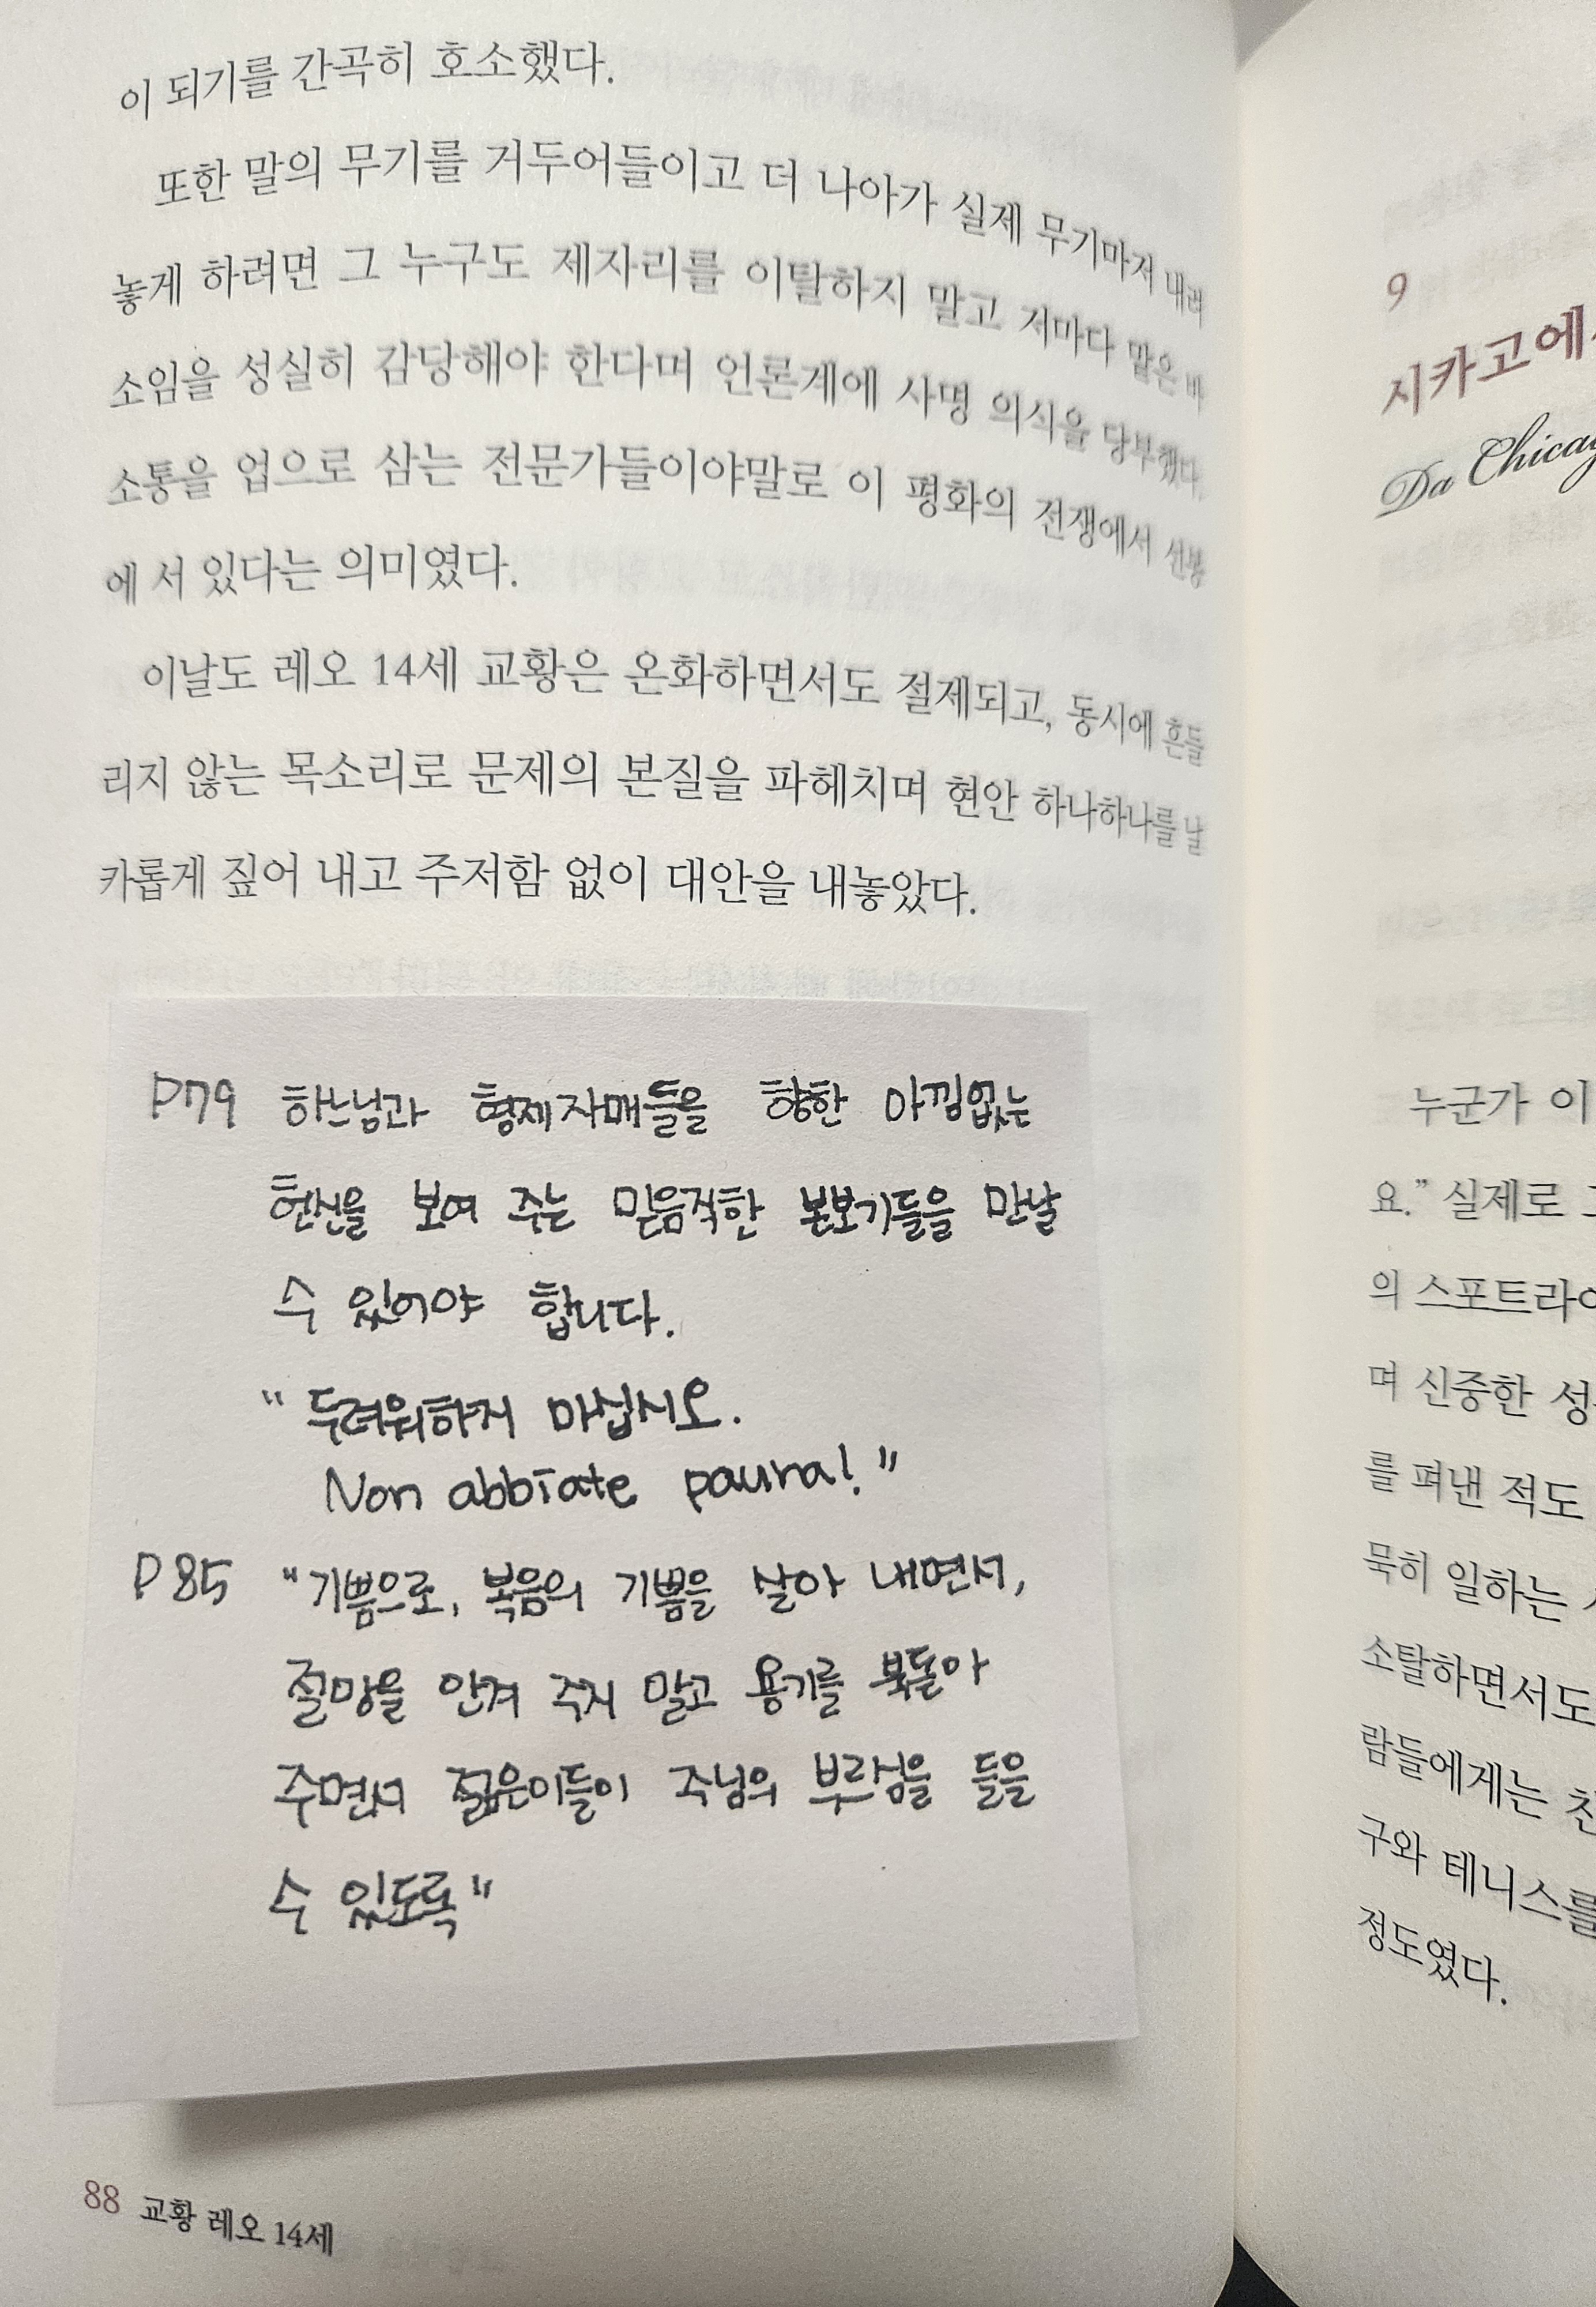 이 되기를 간곡히 호소했다.
또한 말의 무기를 거두어들이고 더 나아가 실제 무기마저 내려
놓게 하려면 그 누구도 제자리를 이탈하지 말고 저마다 맡은 바
소임을 성실히 감당해야 한다며 언론계에 사명 의식을 당부했다.
소통을 업으로 삼는 전문가들이야말로 이 평화의 전쟁에서 선봉
에 서 있다는 의미였다.
이날도 레오 14세 교황은 온화하면서도 절제되고, 동시에 흔들
리지 않는 목소리로 문제의 본질을 파헤치며 현안 하나하나를 날
카롭게 짚어 내고 주저함 없이 대안을 내놓았다.
P79 하느님과 형제자매들을 향한 아낌없는
헌신을 보여 주는 믿음직한 본보기들을 만날
수 있어야 합니다.
"두려워하지 마십시오.
Non abbiate paura!"
P85 "기쁨으로, 복음의 기쁨을 살아 내면서,
절망을 안겨 주지 말고 용기를 북돋아
주면서 젊은이들이 주님의 부르심을 들을
수 있도록"
88 교황 레오 14세
9
시카고에
Da Chicag
누군가 이
요.” 실제로
의 스포트라이
며 신중한 성
를 펴낸 적도
묵히 일하는
소탈하면서도
람들에게는 친
구와 테니스를
정도였다.